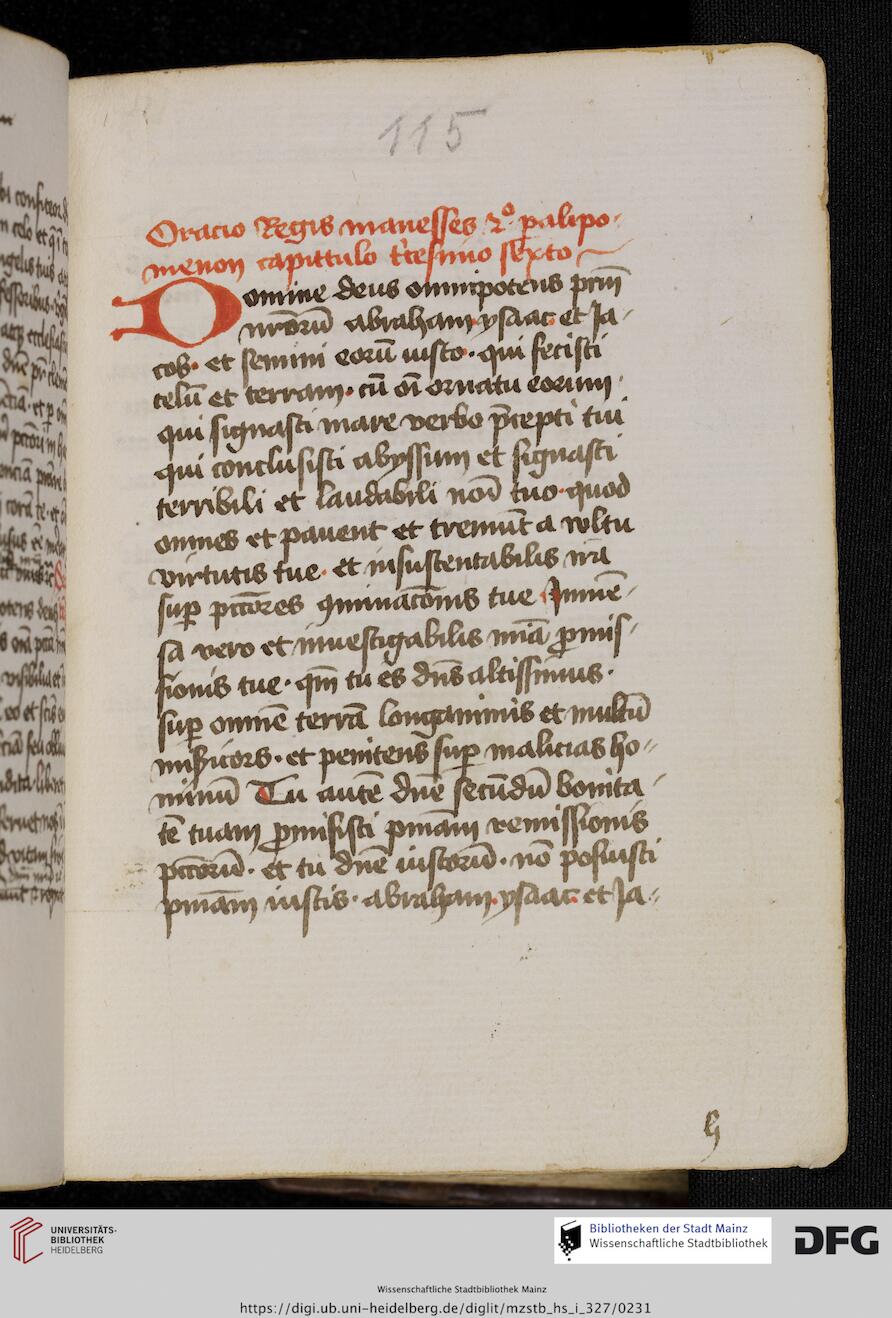 115
Oracio Regis manesses 2º palipo-
menon capittulo tˀcesimo sexto
Domine deus omnipotens prm̄
nr̄orū abraham·ysaac·et Ja-
cob· et semini eorū iusto· qui fecisti
celū et terram· cū oī ornatu eorum·
qui signasti mare verbo p̄cepti tui
qui conclusisti abyssum et signasti
terribili et laudabili noī tuo·quod
omnes et pauent et tremūt a voltu
virtutis tue· et insustentabilis ira
suꝑ pctōres ꝯminacōnis tue Jmmē-
sa vero et inuestigabilis mīa ꝓmis-
sionis tue· qm̄ tu es dn̄s altissimus·
suꝑ omnē terrā longanimis et multū
misicors· et penitens suꝑ malicias ho-
minū Tu autē dn̄e secūdū bonita-
tē tuam ꝓmisisti pn̄iam remissionis
pctōrū· et tu dn̄e iustorū· nō posuisti
pn̄iam iustis· abraham·ysaac· et Ja-
UNIVERSITÄTS-
BIBLIOTHEK
HEIDELBERG
Bibliotheken der Stadt Mainz
Wissenschaftliche Stadtbibliothek
DFG
Wissenschaftliche Stadtbibliothek Mainz
https://digi.ub.uni-heidelberg.de/diglit/mzstb_hs_i_327/0231